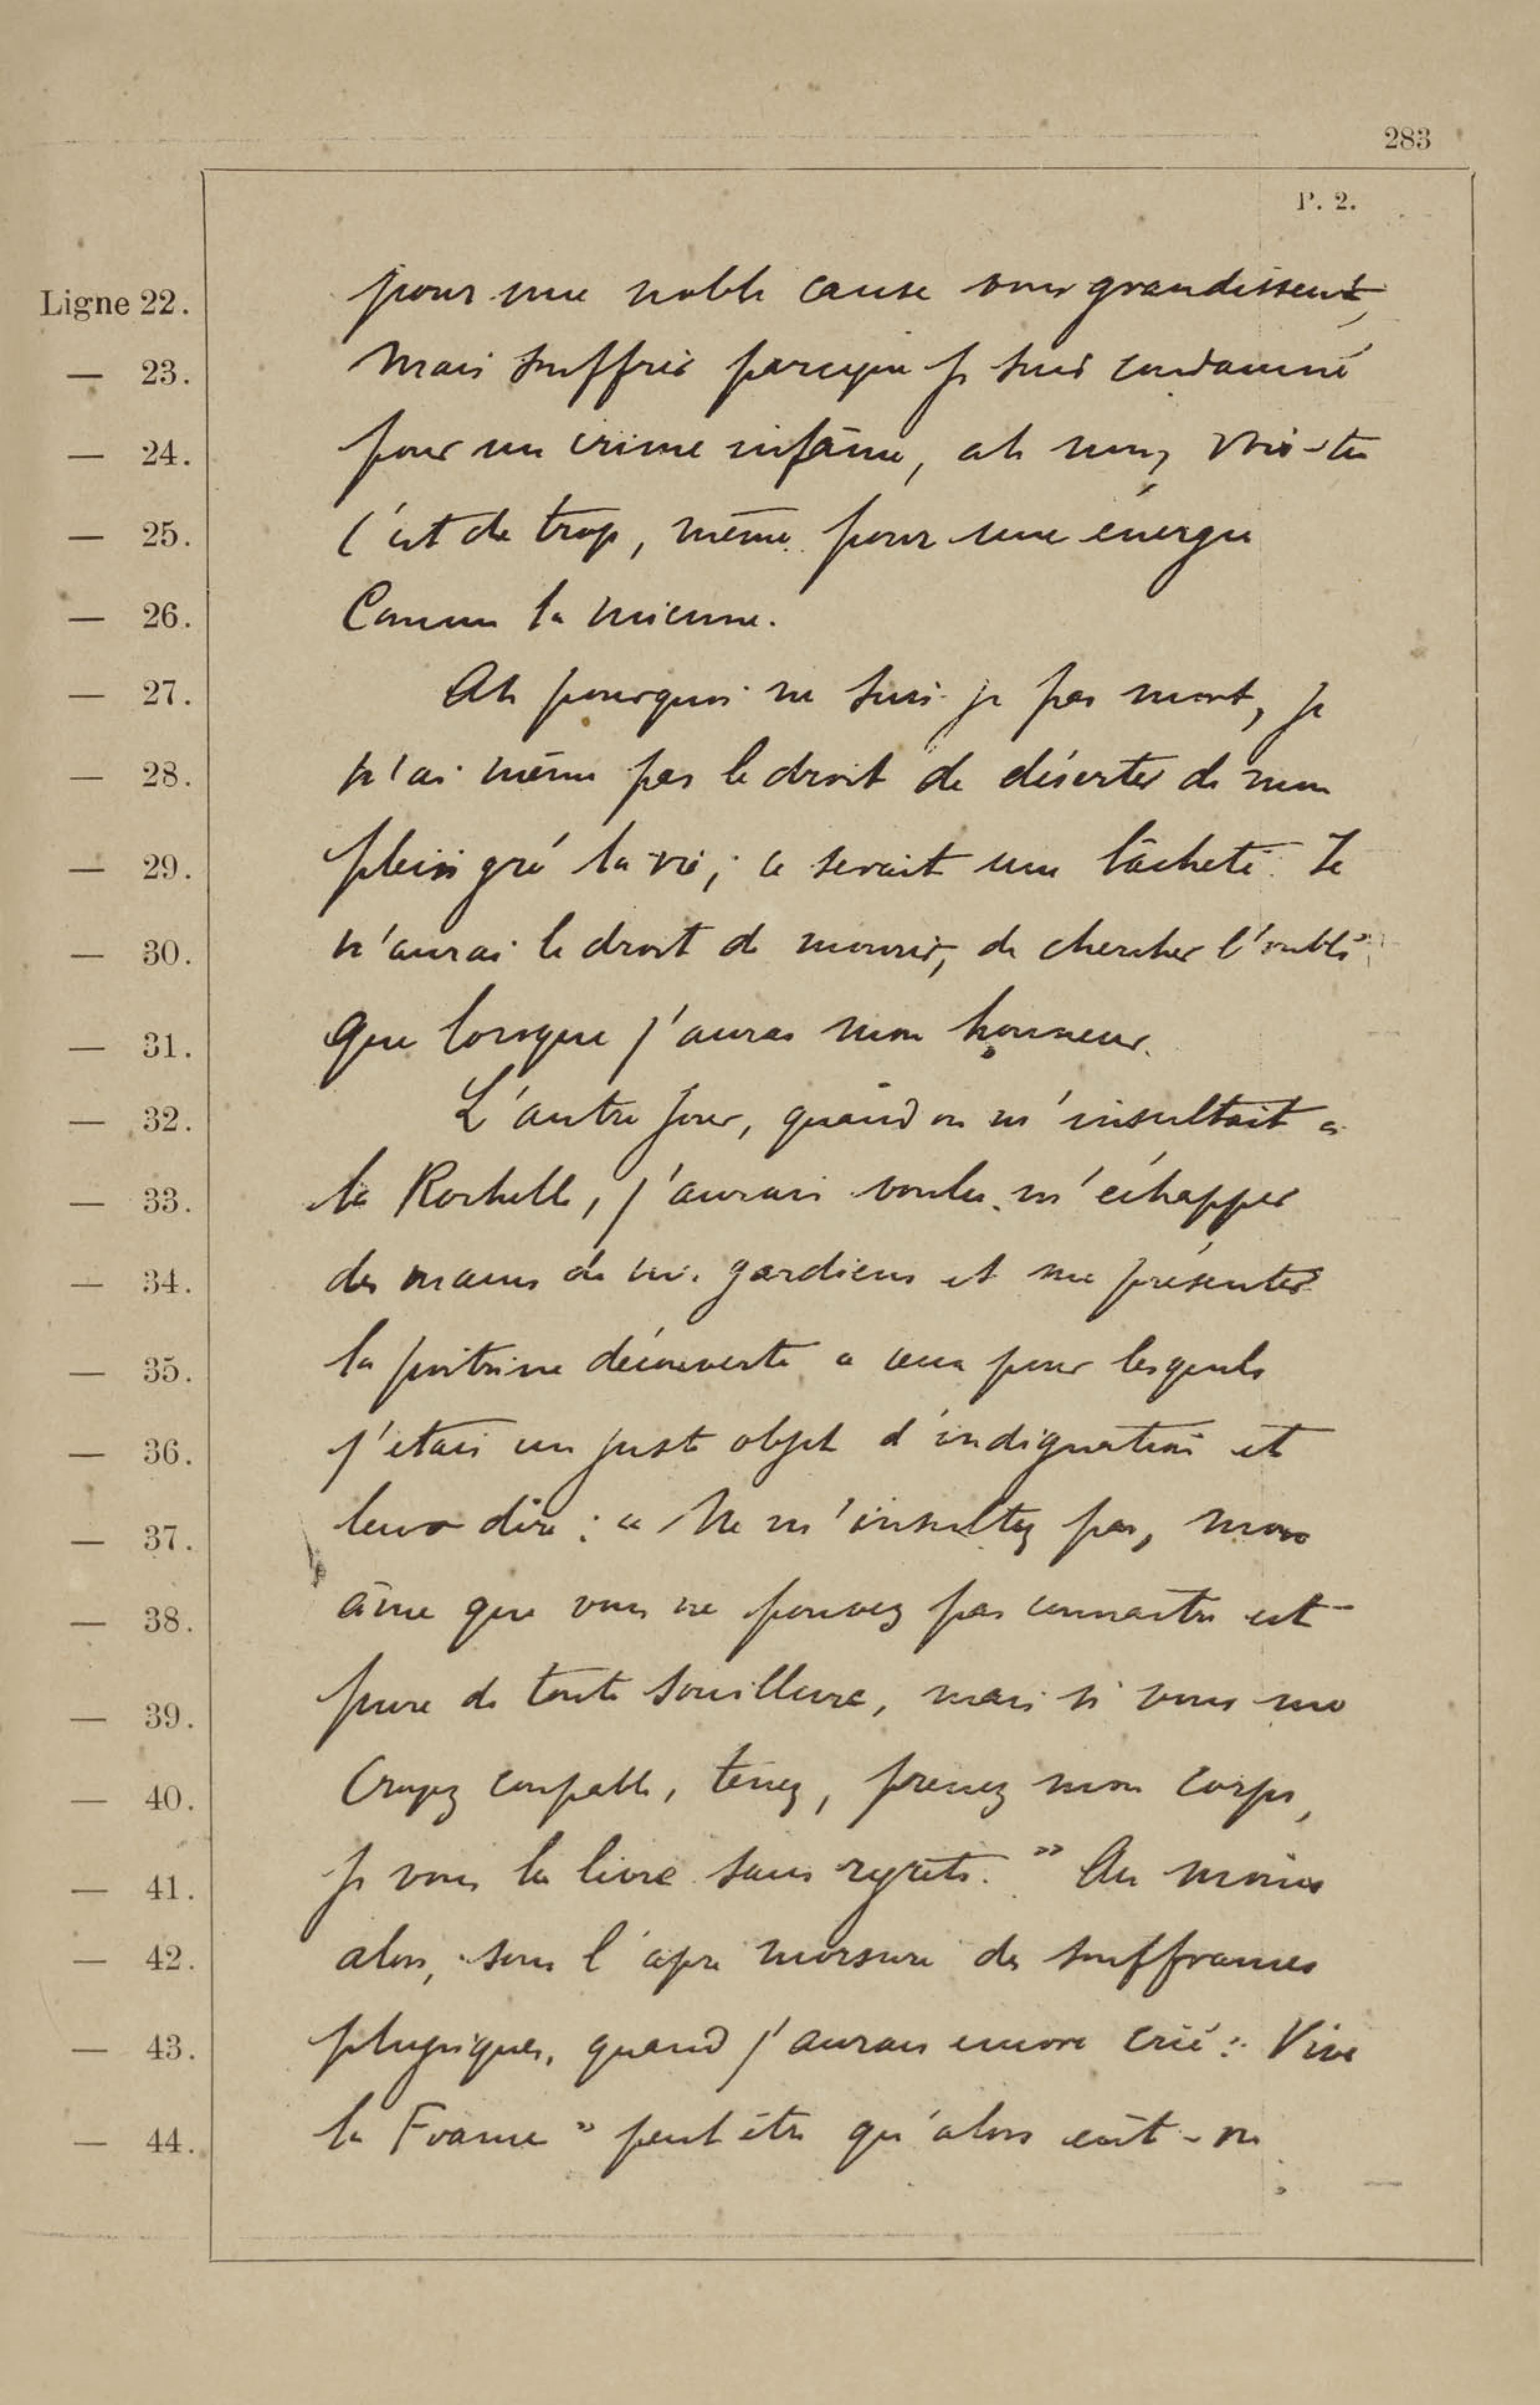 283
P. 2.
Ligne 22. pour une noble cause vous grandissent,
— 23. mais souffrir parceque je suis condamné
— 24. pour un crime infâme, ah non, vois-tu
— 25. c'est de trop, même pour une énergie
— 26. Comme la mienne.
— 27. Ah pourquoi ne suis-je pas mort, je
— 28. n'ai même pas le droit de déserter de mon
— 29. plein gré la vie; ce serait une lâcheté. Je
— 30. n'aurai le droit de mourir, de chercher l'oubli
— 31. que lorsque j'aurai mon honneur.
— 32. L'autre jour, quand on m'insultait à
— 33. la Rochelle, j'aurais voulu m'échapper
— 34. des mains de mes gardiens et me présenter
— 35. la poitrine découverte a ceux pour lesquels
— 36. j'étais un juste objet d'indignation et
— 37. leur dire: « Ne m'insultez pas, mon
— 38. âme que vous ne pouvez pas connaitre est
— 39. pure de toute souillure, mais si vous me
— 40. Croyez coupable, tenez, prenez mon corps,
— 41. je vous le livre sans regrets. » Au moins
— 42. alors, sous l'apre morsure des souffrances
— 43. physiques, quand j'aurais encore crié: Vive
— 44. la France » peut être qu'alors eût-on